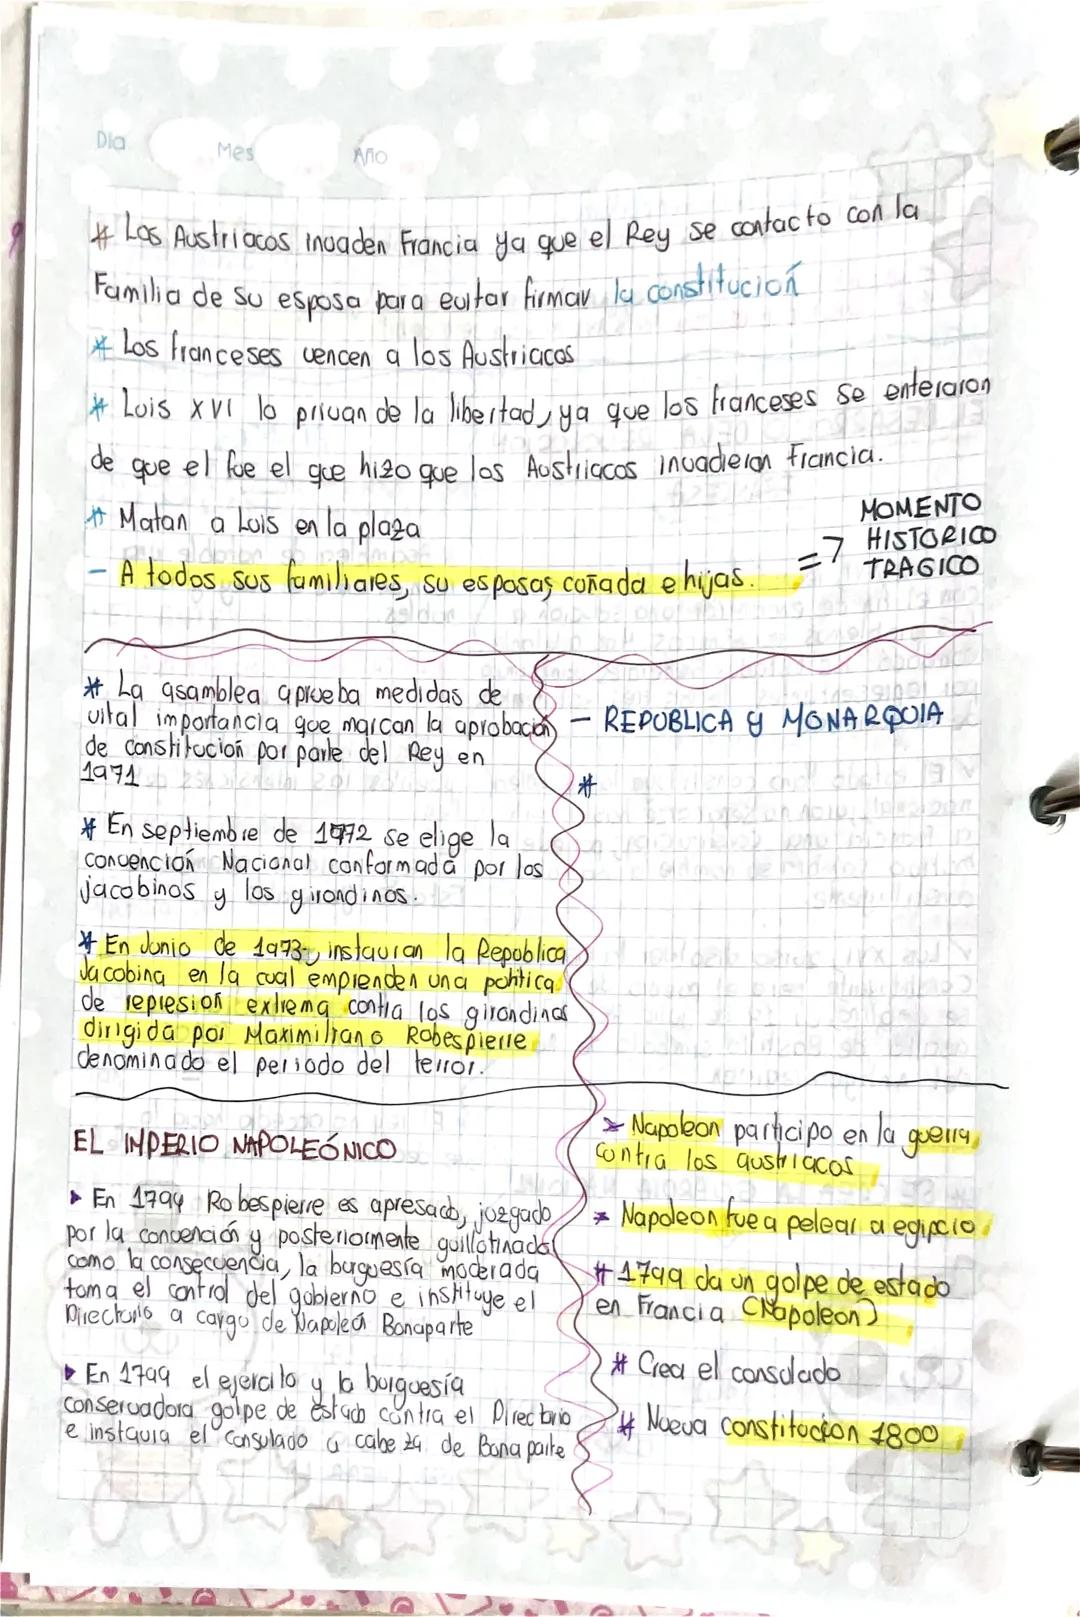 Dia
Mes
Año
* Los Austriacos invaden Francia ya que el Rey se contacto con la
Familia de su esposa para evitar firmar la constitución
* Los franceses vencen a los Austriacos
* Luis XVI lo privan de la libertad, ya que los franceses se enteraron
de que el fue el que hizo que los Austriacos invadieran Francia.
* Matan a Luis en la plaza
- A todos sus familiares, su esposa, cuñada e hijas.
=> MOMENTO
HISTORICO
TRAGICO
* La asamblea aprueba medidas de
vital importancia que marcan la aprobación
de constitución por parte del Rey en
1971
* En septiembre de 1972 se elige la
convención Nacional conformada por los
jacobinos y los girondinos.
* En Junio de 1973, instauran la Republica
Jacobina en la cual emprenden una politica
de represion extrema contra los girondinos
dirigida por Maximiliano Robespierre
denominado el periodo del terror.
- REPUBLICA y MONARQUIA
*
EL IMPERIO NAPOLEÓNICO
▸ En 1794 Robespierre es apresado, juzgado
por la convención y posteriormente guillotinado
como la consecuencia, la burguesía moderada
toma el control del gobierno e instituye el
Directorio a cargo de Napoleón Bonaparte
▸ En 1799 el ejercito y la burguesía
conservadora golpe de estado contra el Directorio
e instaura el consulado a cabeza de Bonaparte
* Napoleon participo en la guerra
contra los austriacos
* Napoleon fue a pelear a egipcio
* 1799 da un golpe de estado
en Francia (Napoleon)
* Crea el consolado
* Nueva constitucion 1800